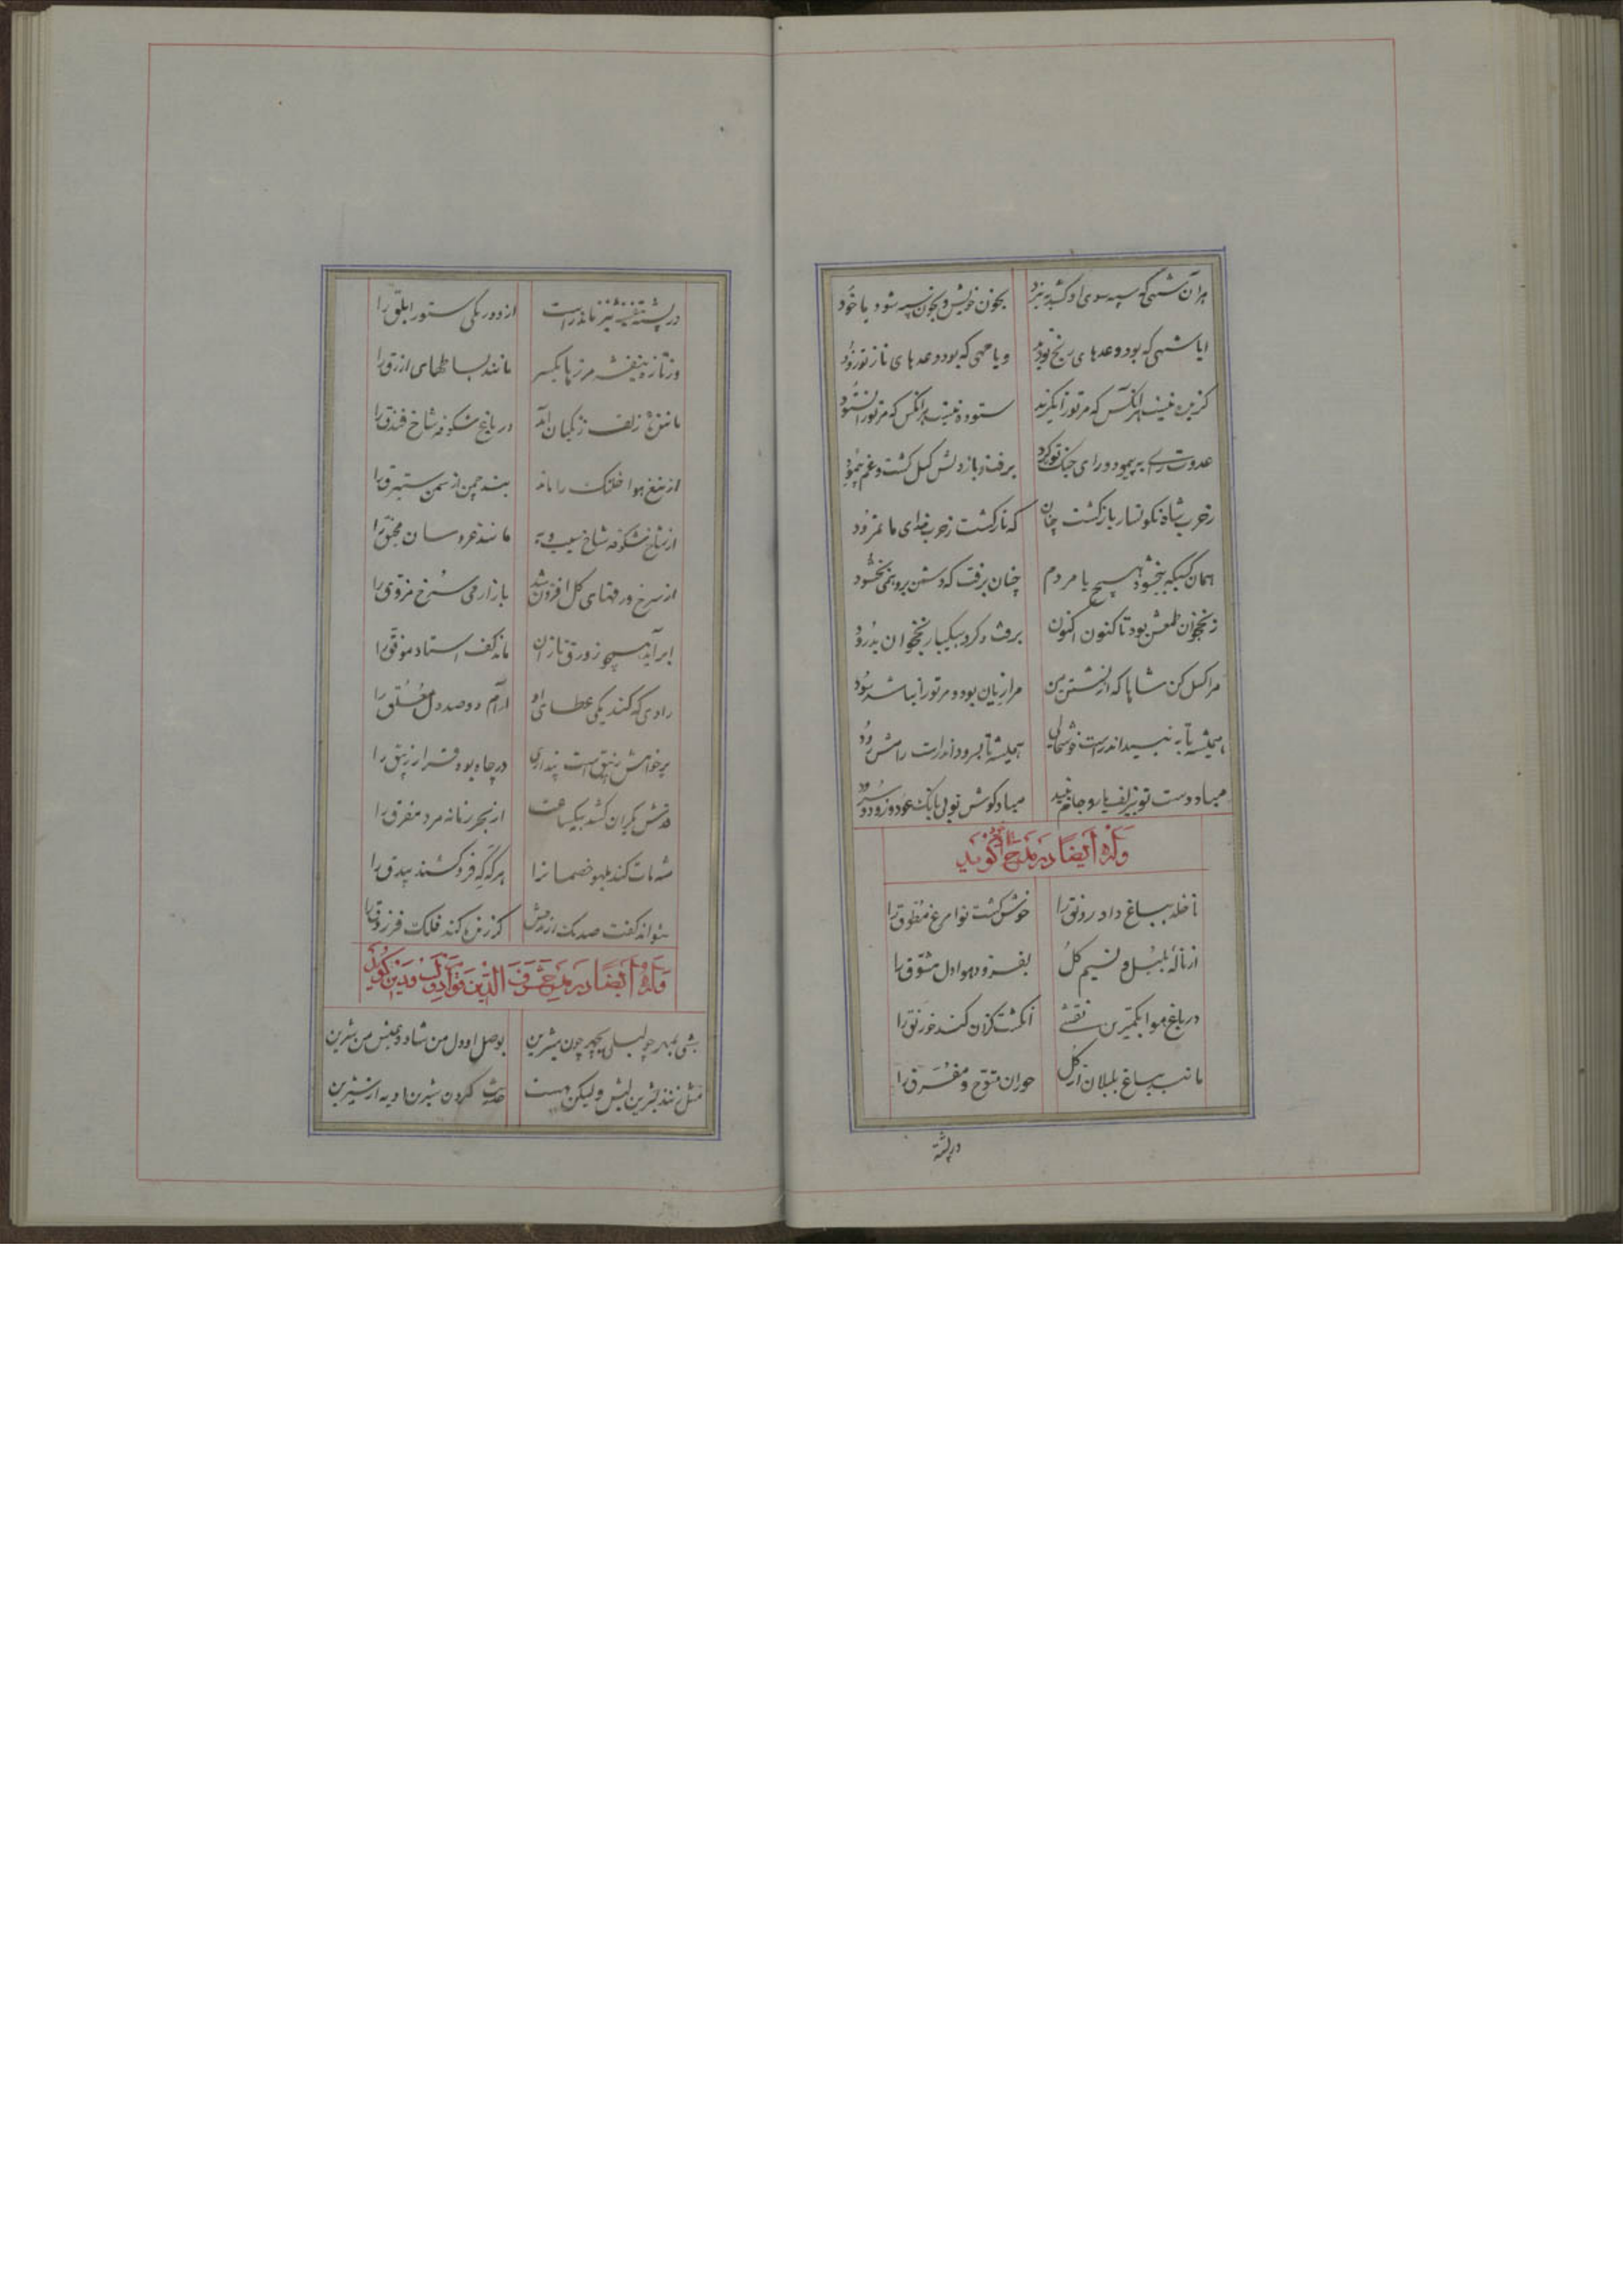 هر آن شهی که سپه سوی او کشد به نبرد بخون خویش و بخون سپه شود ماخوذ
ایا شهی که بود وعدهای رنج تو دیر و یا مهی که بود وعدهای ناز تو زود
گزیده نیست هر آنکس که مر تو را نگزید ستوده نیست هر آنکس که مر تو را نستود
عدوت راه به پیمود و رای جنگ تو کرد برفت و باز دلش گسل گشت و غم پیمود
ز حرب شاه نگونسار بازگشت چنان که بازگشت ز حرب خدای ما نمرود
همان کسیکه نبخشود هیچ با مردم چنان برفت که دشمن بروهمی بخشود
ز نخجوان طمعش بود تا کنون اکنون برفت و کرد بیکبار نخجوان بدرود
مرا گسل کن شاها که از نشستن من مرا زیان بود و مر تو را نباشد سود
همیشه تا به نبید اندر است خوشحالی همیشه تا بسرود اندر است رامش رود
مباد دست تو بی زلف یار و جام نبید مباد گوش تو بی بانگ عود و رود و سرود
وله ایضا در مدح گوید
تا خلد بباغ داد رونق را خوش گشت نوا مرغ مطوق را
از نالهٔ بلبل و نسیم گل بفزود هوا دل مشوق را
در باغ هوا بکمترین نقشی انگشت گزان کند خورنق را
مانند بباغ بلبلان از گل حوران متوج و مقرق را
در پشته
در پشته بنفشه نیز ماند راست از دور یکی ستور ابلق را
وز تازه بنفشه مرزها یکسر مانند بساطهای ازرق را
مانند زلف زنگیان آمد در باغ شکوفه شاخ فندق را
از میغ هوا خلنگ را ماند بند چمن از سمن ستبرق را
از شاخ شکوفه شاخ سیب و به مانند عروسان مخنق را
از سرخ ورقهای گل افزون شد بازار می سرخ مروق را
ابر آید همچو زورق نازان ماند کف استاد موفق را
رادی که کند یکی عطای او آرام دو صد دل معلق را
بر خواهش زیبق است پنداری در چاه بود قرار زیبق را
دستش بکران کشد بیکساعت از بحر زمانه مرد مغرق را
شه مات کند بلهو خصمانرا هر گه که فرو کشند بیدق را
نتواند گفت صد یک از مدحش گر زنده کند فلک فرزدق را
وله ایضا در مدح شرف الدین قوام دولت و دین گوید
بتی بمهر چو لیلی بچهر چون شیرین بوصل او دل من شاد و عیش من شیرین
مثل زنند بشیرین لبش ولیکن هست حدیث کردن شیرین او به از شیرین